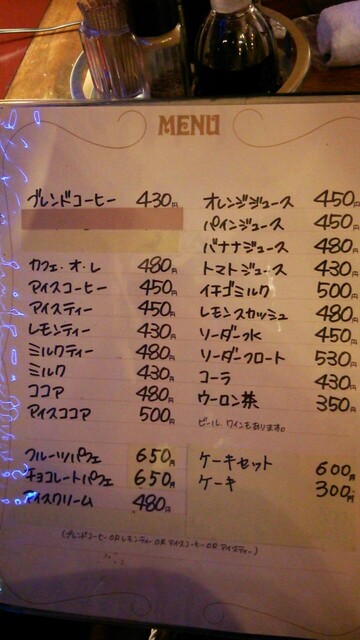 MENU
ブレンドコーヒー 430円
カフェ・オ・レ 480円
アイスコーヒー 450円
アイスティー 450円
レモンティー 430円
ミルクティー 480円
ミルク 430円
ココア 480円
アイスココア 500円
フルーツパフェ 650円
チョコレートパフェ 650円
アイスクリーム 480円
オレンジジュース 450円
パインジュース 450円
バナナジュース 480円
トマトジュース 430円
イチゴミルク 500円
レモンスカッシュ 480円
ソーダー水 450円
ソーダーフロート 530円
コーラ 430円
ウーロン茶 350円
ビール、ワインもあります。
ケーキセット 600円
ケーキ 300円
(ブレンドコーヒー OR レモンティー OR アイスコーヒー OR アイスティー)